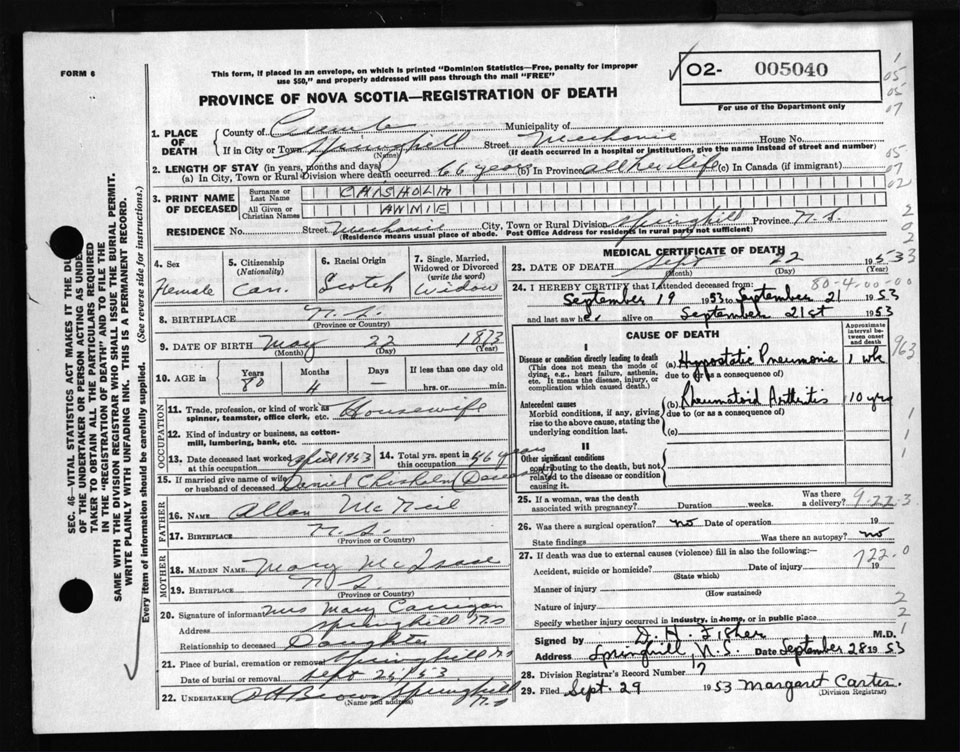 FORM 6
This form, if placed in an envelope, on which is printed "Dominion Statistics—Free, penalty for improper
use $50," and properly addressed will pass through the mail "FREE"
02- 005040
For use of the Department only
PROVINCE OF NOVA SCOTIA—REGISTRATION OF DEATH
1. PLACE OF DEATH County of Municipality of
If in City or Town Springhill (Name) Street Mechanic House No.
(If death occurred in a hospital or institution, give the name instead of street and number)
2. LENGTH OF STAY (in years, months and days)
(a) In City, Town or Rural Division where death occurred 66 years (b) In Province all her life (c) In Canada (if immigrant)
3. PRINT NAME OF DECEASED Surname or Last Name CHISHOLM
All Given or Christian Names ANNIE
RESIDENCE No. Street Mechanic City, Town or Rural Division Springhill Province N.S.
(Residence means usual place of abode. Post Office Address for residents in rural parts not sufficient)
4. Sex Female
5. Citizenship (Nationality) Can.
6. Racial Origin Scotch
7. Single, Married, Widowed or Divorced (write the word) Widow
8. BIRTHPLACE N.S.
(Province or Country)
9. DATE OF BIRTH May 22 1873
(Month) (Day) (Year)
10. AGE in Years 80 Months 4 Days — If less than one day old
hrs. or min.
OCCUPATION
11. Trade, profession, or kind of work as spinner, teamster, office clerk, etc. Housewife
12. Kind of industry or business, as cotton-mill, lumbering, bank, etc.
13. Date deceased last worked at this occupation April 1953 14. Total yrs. spent in this occupation 56 years
15. If married give name of wife or husband of deceased Daniel Chisholm (Deceased)
FATHER
16. NAME Allan McNeil
17. BIRTHPLACE N.S.
(Province or Country)
MOTHER
18. MAIDEN NAME Mary McIsaac
19. BIRTHPLACE N.S.
(Province or Country)
20. Signature of informant Mrs Mary Carrigan
Address Springhill N.S
Relationship to deceased Daughter
21. Place of burial, cremation or removal Springhill N.S
Date of burial or removal Sept 25/53
22. UNDERTAKER Brown Springhill N.S
(Name and address)
MEDICAL CERTIFICATE OF DEATH
23. DATE OF DEATH 22 1953
(Month) (Day) (Year)
24. I HEREBY CERTIFY that I attended deceased from: 80-4-00-00
September 19 1953 to September 21 1953
and last saw her alive on September 21st 1953
CAUSE OF DEATH
Approximate interval between onset and death
I
Disease or condition directly leading to death
(This does not mean the mode of dying, e.g., heart failure, asthenia, etc. It means the disease, injury, or complication which caused death.)
(a) Hypostatic Pneumonia 1 wk
due to (or as a consequence of)
Antecedent causes
Morbid conditions, if any, giving rise to the above cause, stating the underlying condition last.
(b) Rheumatoid Arthritis 10 yrs
due to (or as a consequence of)
(c)
II
Other significant conditions
contributing to the death, but not related to the disease or condition causing it.
25. If a woman, was the death associated with pregnancy? Duration weeks. Was there a delivery? 9-22-3
26. Was there a surgical operation? no Date of operation 19
State findings Was there an autopsy? no
27. If death was due to external causes (violence) fill in also the following:— 722.0
Accident, suicide or homicide? Date of injury 19
(State which)
Manner of injury
(How sustained)
Nature of injury
Specify whether injury occurred in industry, in home, or in public place
Signed by D. H. Fisher M.D.
Address Springhill, N.S. Date September 28 1953
28. Division Registrar's Record Number 17
29. Filed Sept. 29 1953 Margaret Carter.
(Division Registrar)
SEC. 46—VITAL STATISTICS ACT MAKES IT THE
OF THE UNDERTAKER OR PERSON ACTING AS UNDER
TAKER TO OBTAIN ALL THE PARTICULARS REQUIRED
IN THE "REGISTRATION OF DEATH" AND TO FILE THE
SAME WITH THE DIVISION REGISTRAR WHO SHALL ISSUE THE BURIAL PERMIT.
WRITE PLAINLY WITH UNFADING INK. THIS IS A PERMANENT RECORD.
Every item of information should be carefully supplied. (See reverse side for instructions.)
1
05
05
07
05
07
02
2
0
2
33
963
1
1
1
2
2
1